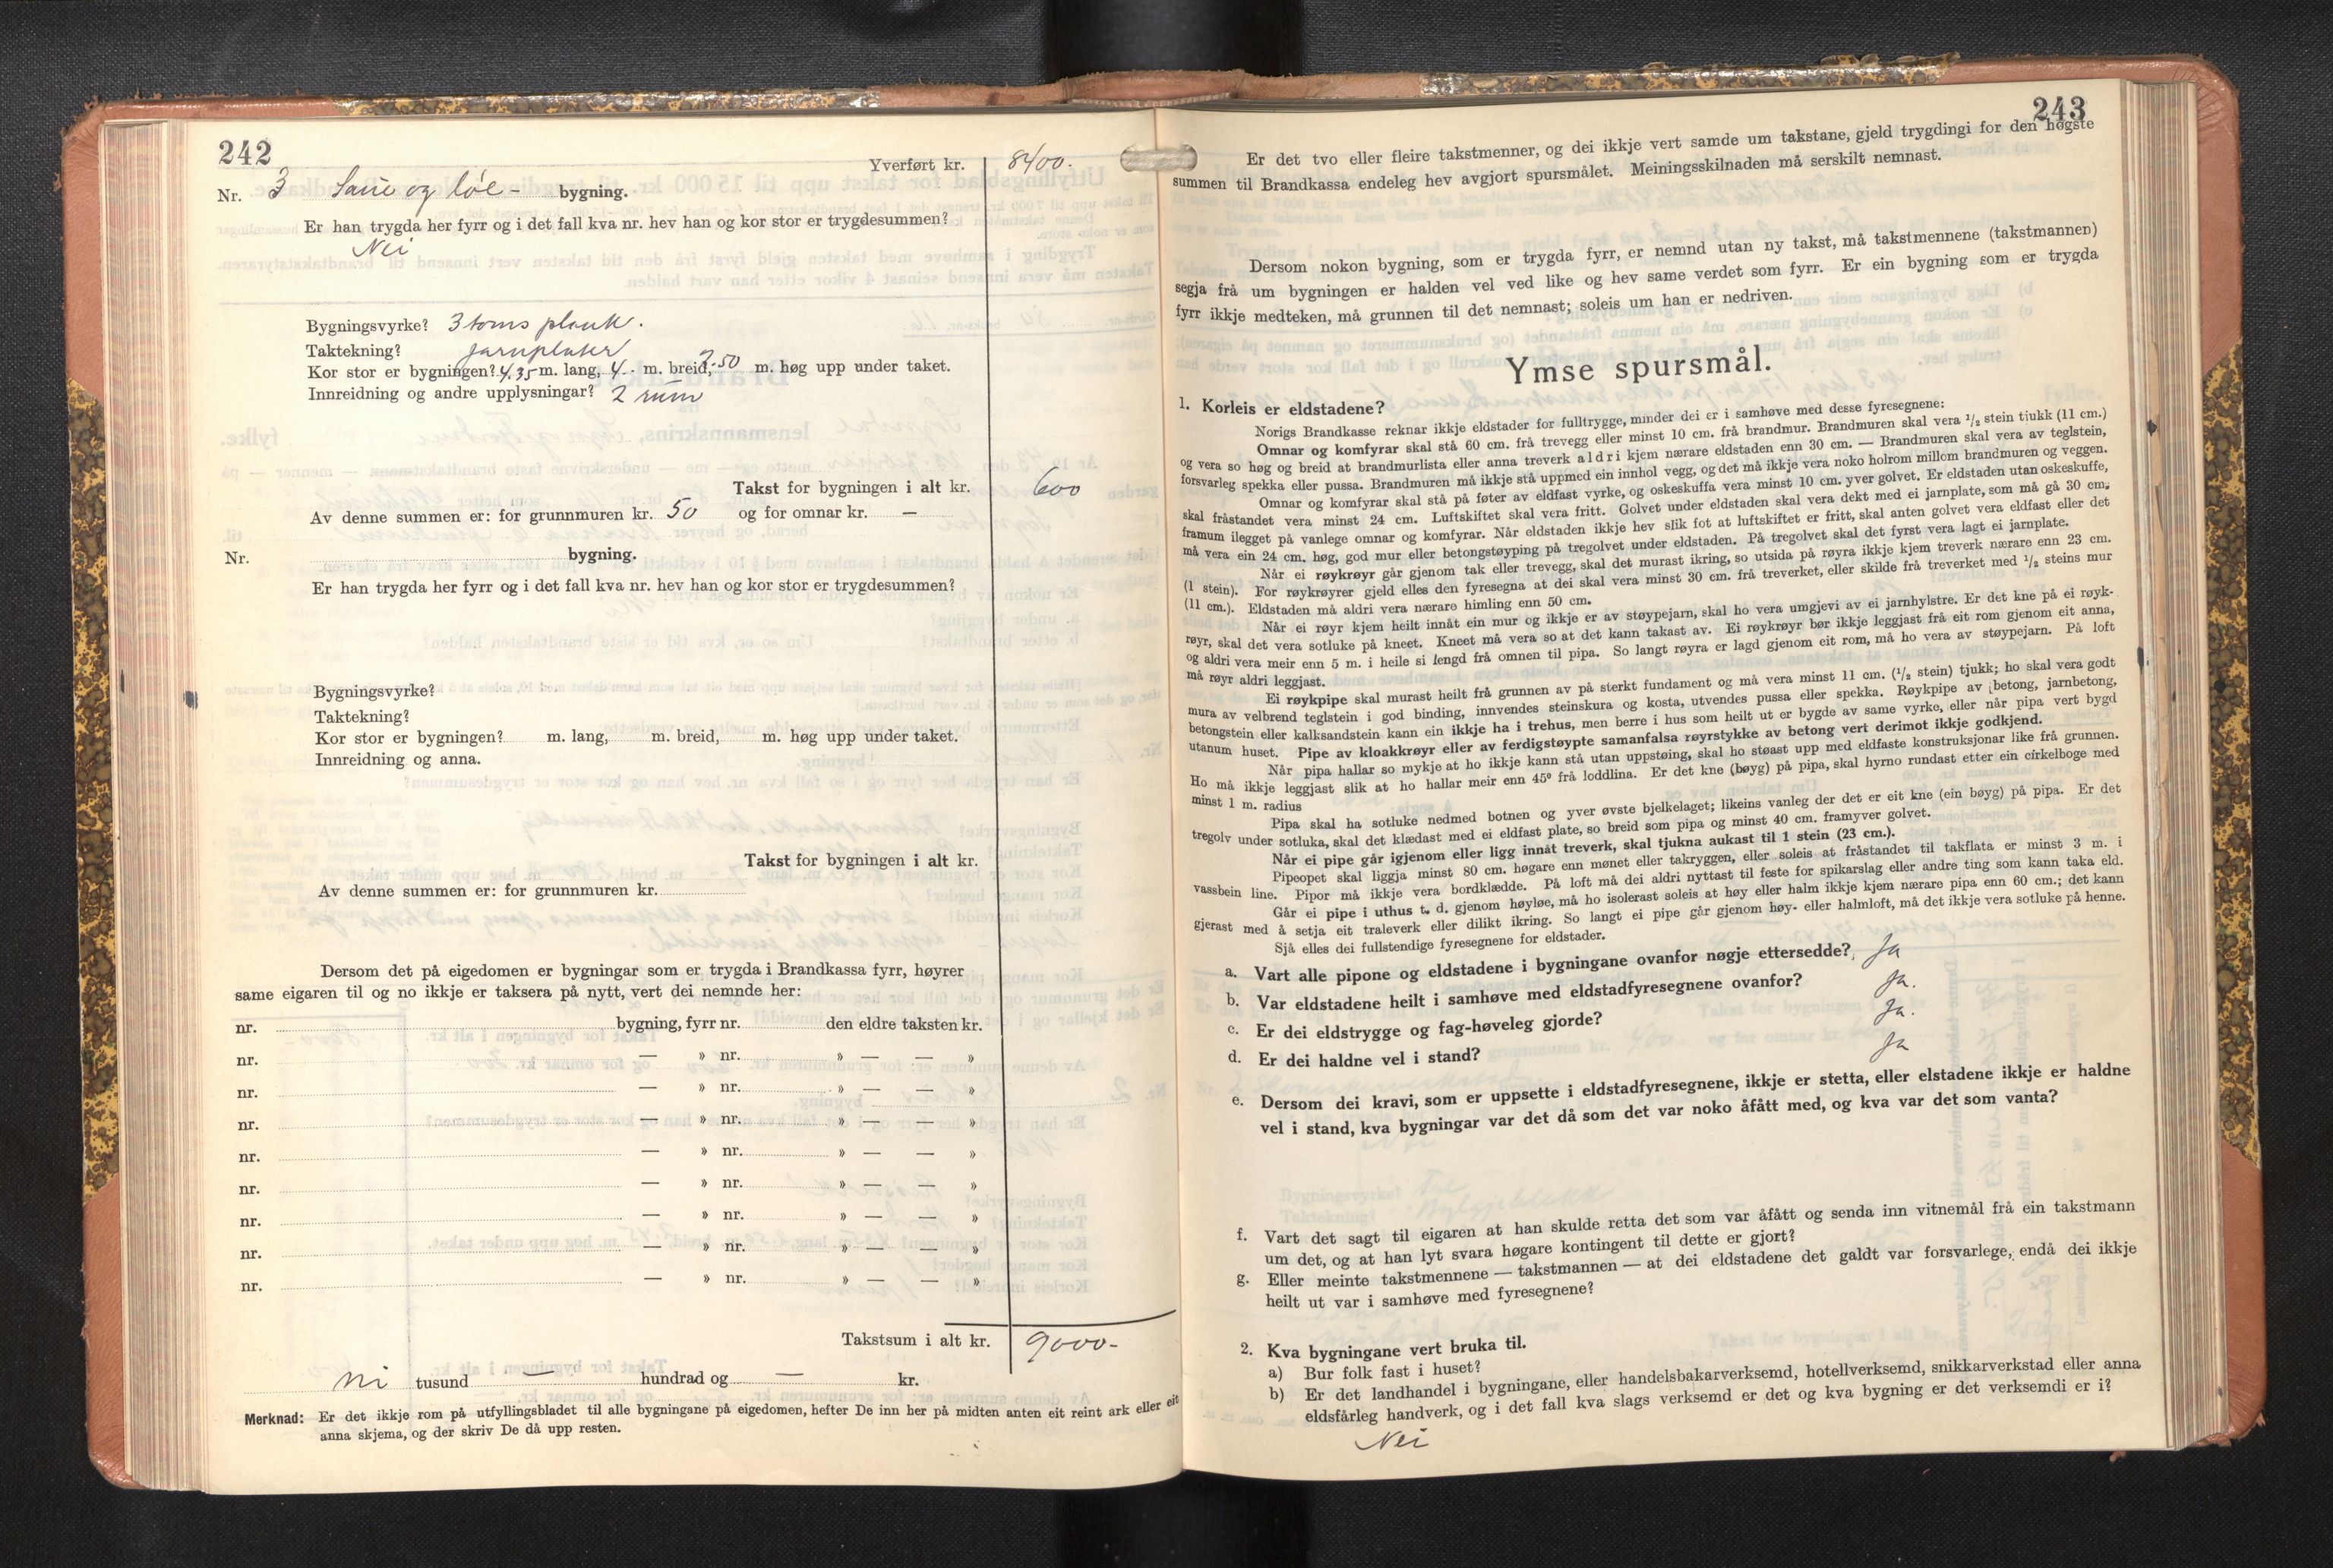 242
Yverført kr. 8400.-
Nr. 3 Saue og løe- bygning.
Er han trygda her fyrr og i det fall kva nr. hev han og kor stor er trygdesummen?
Nei
Bygningsvyrke? 3 toms plank.
Taktekning? Jarnplater
Kor stor er bygningen? 4,35 m. lang, 4.- m. breid, 2.50 m. høg upp under taket.
Innreidning og andre upplysningar? 2 rum
Takst for bygningen i alt kr. 600
Av denne summen er: for grunnmuren kr. 50 og for omnar kr. —
Nr. bygning.
Er han trygda her fyrr og i det fall kva nr. hev han og kor stor er trygdesummen?
Bygningsvyrke?
Taktekning?
Kor stor er bygningen? m. lang, m. breid, m. høg upp under taket.
Innreidning og anna.
Takst for bygningen i alt kr.
Av denne summen er: for grunnmuren kr.
Dersom det på eigedomen er bygningar som er trygda i Brandkassa fyrr, høyrer
same eigaren til og no ikkje er taksera på nytt, vert dei nemnde her:
nr. bygning, fyrr nr. den eldre taksten kr.
nr. — » nr. » — — »
nr. — » nr. » — — »
nr. — » nr. » — — »
nr. — » nr. » — — »
nr. — » nr. » — — »
nr. — » nr. » — — »
nr. — » nr. » — — »
nr. — » nr. » — — »
Takstsum i alt kr. 9000-
ni tusund — hundrad og — kr.
Merknad: Er det ikkje rom på utfyllingsbladet til alle bygningane på eigedomen, hefter De inn her på midten anten eit reint ark eller eit
anna skjema, og der skriv De då upp resten.
243
Er det tvo eller fleire takstmenner, og dei ikkje vert samde um takstane, gjeld trygdingi for den høgste
summen til Brandkassa endeleg hev avgjort spursmålet. Meiningsskilnaden må serskilt nemnast.
Dersom nokon bygning, som er trygda fyrr, er nemnd utan ny takst, må takstmennene (takstmannen)
segja frå um bygningen er halden vel ved like og hev same verdet som fyrr. Er ein bygning som er trygda
fyrr ikkje medteken, må grunnen til det nemnast; soleis um han er nedriven.
Ymse spursmål.
1. Korleis er eldstadene?
Norigs Brandkasse reknar ikkje eldstader for fulltrygge, minder dei er i samhøve med desse fyresegnene:
Omnar og komfyrar skal stå 60 cm. frå trevegg eller minst 10 cm. frå brandmur. Brandmuren skal vera ½ stein tjukk (11 cm.)
og vera so høg og breid at brandmurlista eller anna treverk aldri kjem nærare eldstaden enn 30 cm. — Brandmuren skal vera av teglstein,
forsvarleg spekka eller pussa. Brandmuren må ikkje stå uppmed ein innhol vegg, og det må ikkje vera noko holrom millom brandmuren og veggen.
Omnar og komfyrar skal stå på føter av eldfast vyrke, og oskeskuffa må vera minst 10 cm. yver golvet. Er eldstaden utan oskeskuffe,
skal fråstandet vera minst 24 cm. Luftskiftet skal vera fritt. Golvet under eldstaden skal vera dekt med ei jarnplate, som må gå 30 cm.
framum ilegget på vanlege omnar og komfyrar. Når eldstaden ikkje hev slik fot at luftskiftet er fritt, skal anten golvet vera eldfast eller det
må vera ein 24 cm. høg, god mur eller betongstøyping på tregolvet under eldstaden. På tregolvet skal det fyrst vera lagt ei jarnplate.
Når ei røykrøyr går gjenom tak eller trevegg, skal det murast ikring, so utsida på røyra ikkje kjem treverk nærare enn 23 cm.
(1 stein). For røykrøyrer gjeld elles den fyresegna at dei skal vera minst 30 cm. frå treverket, eller skilde frå treverket med ½ steins mur
(11 cm.). Eldstaden må aldri vera nærare himling enn 50 cm.
Når ei røyr kjem heilt innåt ein mur og ikkje er av støypejarn, skal ho vera umgjevi av ei jarnhylstre. Er det kne på ei røyk-
røyr, skal det vera sotluke på kneet. Kneet må vera so at det kann takast av. Ei røykrøyr bør ikkje leggjast frå eit rom gjenom eit anna,
og aldri vera meir enn 5 m. i heile si lengd frå omnen til pipa. So langt røyra er lagd gjenom eit rom, må ho vera av støypejarn. På loft
må røyr aldri leggjast.
Ei røykpipe skal murast heilt frå grunnen av på sterkt fundament og må vera minst 11 cm. (½ stein) tjukk; ho skal vera godt
mura av velbrend teglstein i god binding, innvendes steinskura og kosta, utvendes pussa eller spekka. Røykpipe av betong, jarnbetong,
betongstein eller kalksandstein kann ein ikkje ha i trehus, men berre i hus som heilt ut er bygde av same vyrke, eller når pipa vert bygd
utanum huset. Pipe av kloakkrøyr eller av ferdigstøypte samanfalsa røyrstykke av betong vert derimot ikkje godkjend.
Når pipa hallar so mykje at ho ikkje kann stå utan uppstøing, skal ho støast upp med eldfaste konstruksjonar like frå grunnen.
Ho må ikkje leggjast slik at ho hallar meir enn 45º frå loddlina. Er det kne (bøyg) på pipa, skal hyrno rundast etter ein cirkelboge med
minst 1 m. radius
Pipa skal ha sotluke nedmed botnen og yver øvste bjelkelaget; likeins vanleg der det er eit kne (ein bøyg) på pipa. Er det
tregolv under sotluka, skal det klædast med ei eldfast plate, so breid som pipa og minst 40 cm. framyver golvet.
Når ei pipe går igjenom eller ligg innåt treverk, skal tjukna aukast til 1 stein (23 cm.).
Pipeopet skal liggja minst 80 cm. høgare enn mønet eller takryggen, eller soleis at fråstandet til takflata er minst 3 m. i
vassbein line. Pipor må ikkje vera bordklædde. På loft må dei aldri nyttast til feste for spikarslag eller andre ting som kann taka eld.
Går ei pipe i uthus t. d. gjenom høyløe, må ho isolerast soleis at høy eller halm ikkje kjem nærare pipa enn 60 cm.; det kann
gjerast med å setja eit traleverk eller dilikt ikring. So langt ei pipe går gjenom høy- eller halmloft, må det ikkje vera sotluke på henne.
Sjå elles dei fullstendige fyresegnene for eldstader.
a. Vart alle pipone og eldstadene i bygningane ovanfor nøgje ettersedde? Ja
b. Var eldstadene heilt i samhøve med eldstadfyresegnene ovanfor? Ja.
c. Er dei eldstrygge og fag-høveleg gjorde? Ja.
d. Er dei haldne vel i stand? Ja
e. Dersom dei kravi, som er uppsette i eldstadfyresegnene, ikkje er stetta, eller elstadene ikkje er haldne
vel i stand, kva bygningar var det då som det var noko åfått med, og kva var det som vanta?
f. Vart det sagt til eigaren at han skulde retta det som var åfått og senda inn vitnemål frå ein takstmann
um det, og at han lyt svara høgare kontingent til dette er gjort?
g. Eller meinte takstmennene — takstmannen — at dei eldstadene det galdt var forsvarlege, endå dei ikkje
heilt ut var i samhøve med fyresegnene?
2. Kva bygningane vert bruka til.
a) Bur folk fast i huset?
b) Er det landhandel i bygningane, eller handelsbakarverksemd, hotellverksemd, snikkarverkstad eller anna
eldsfårleg handverk, og i det fall kva slags verksemd er det og kva bygning er det verksemdi er i?
Nei